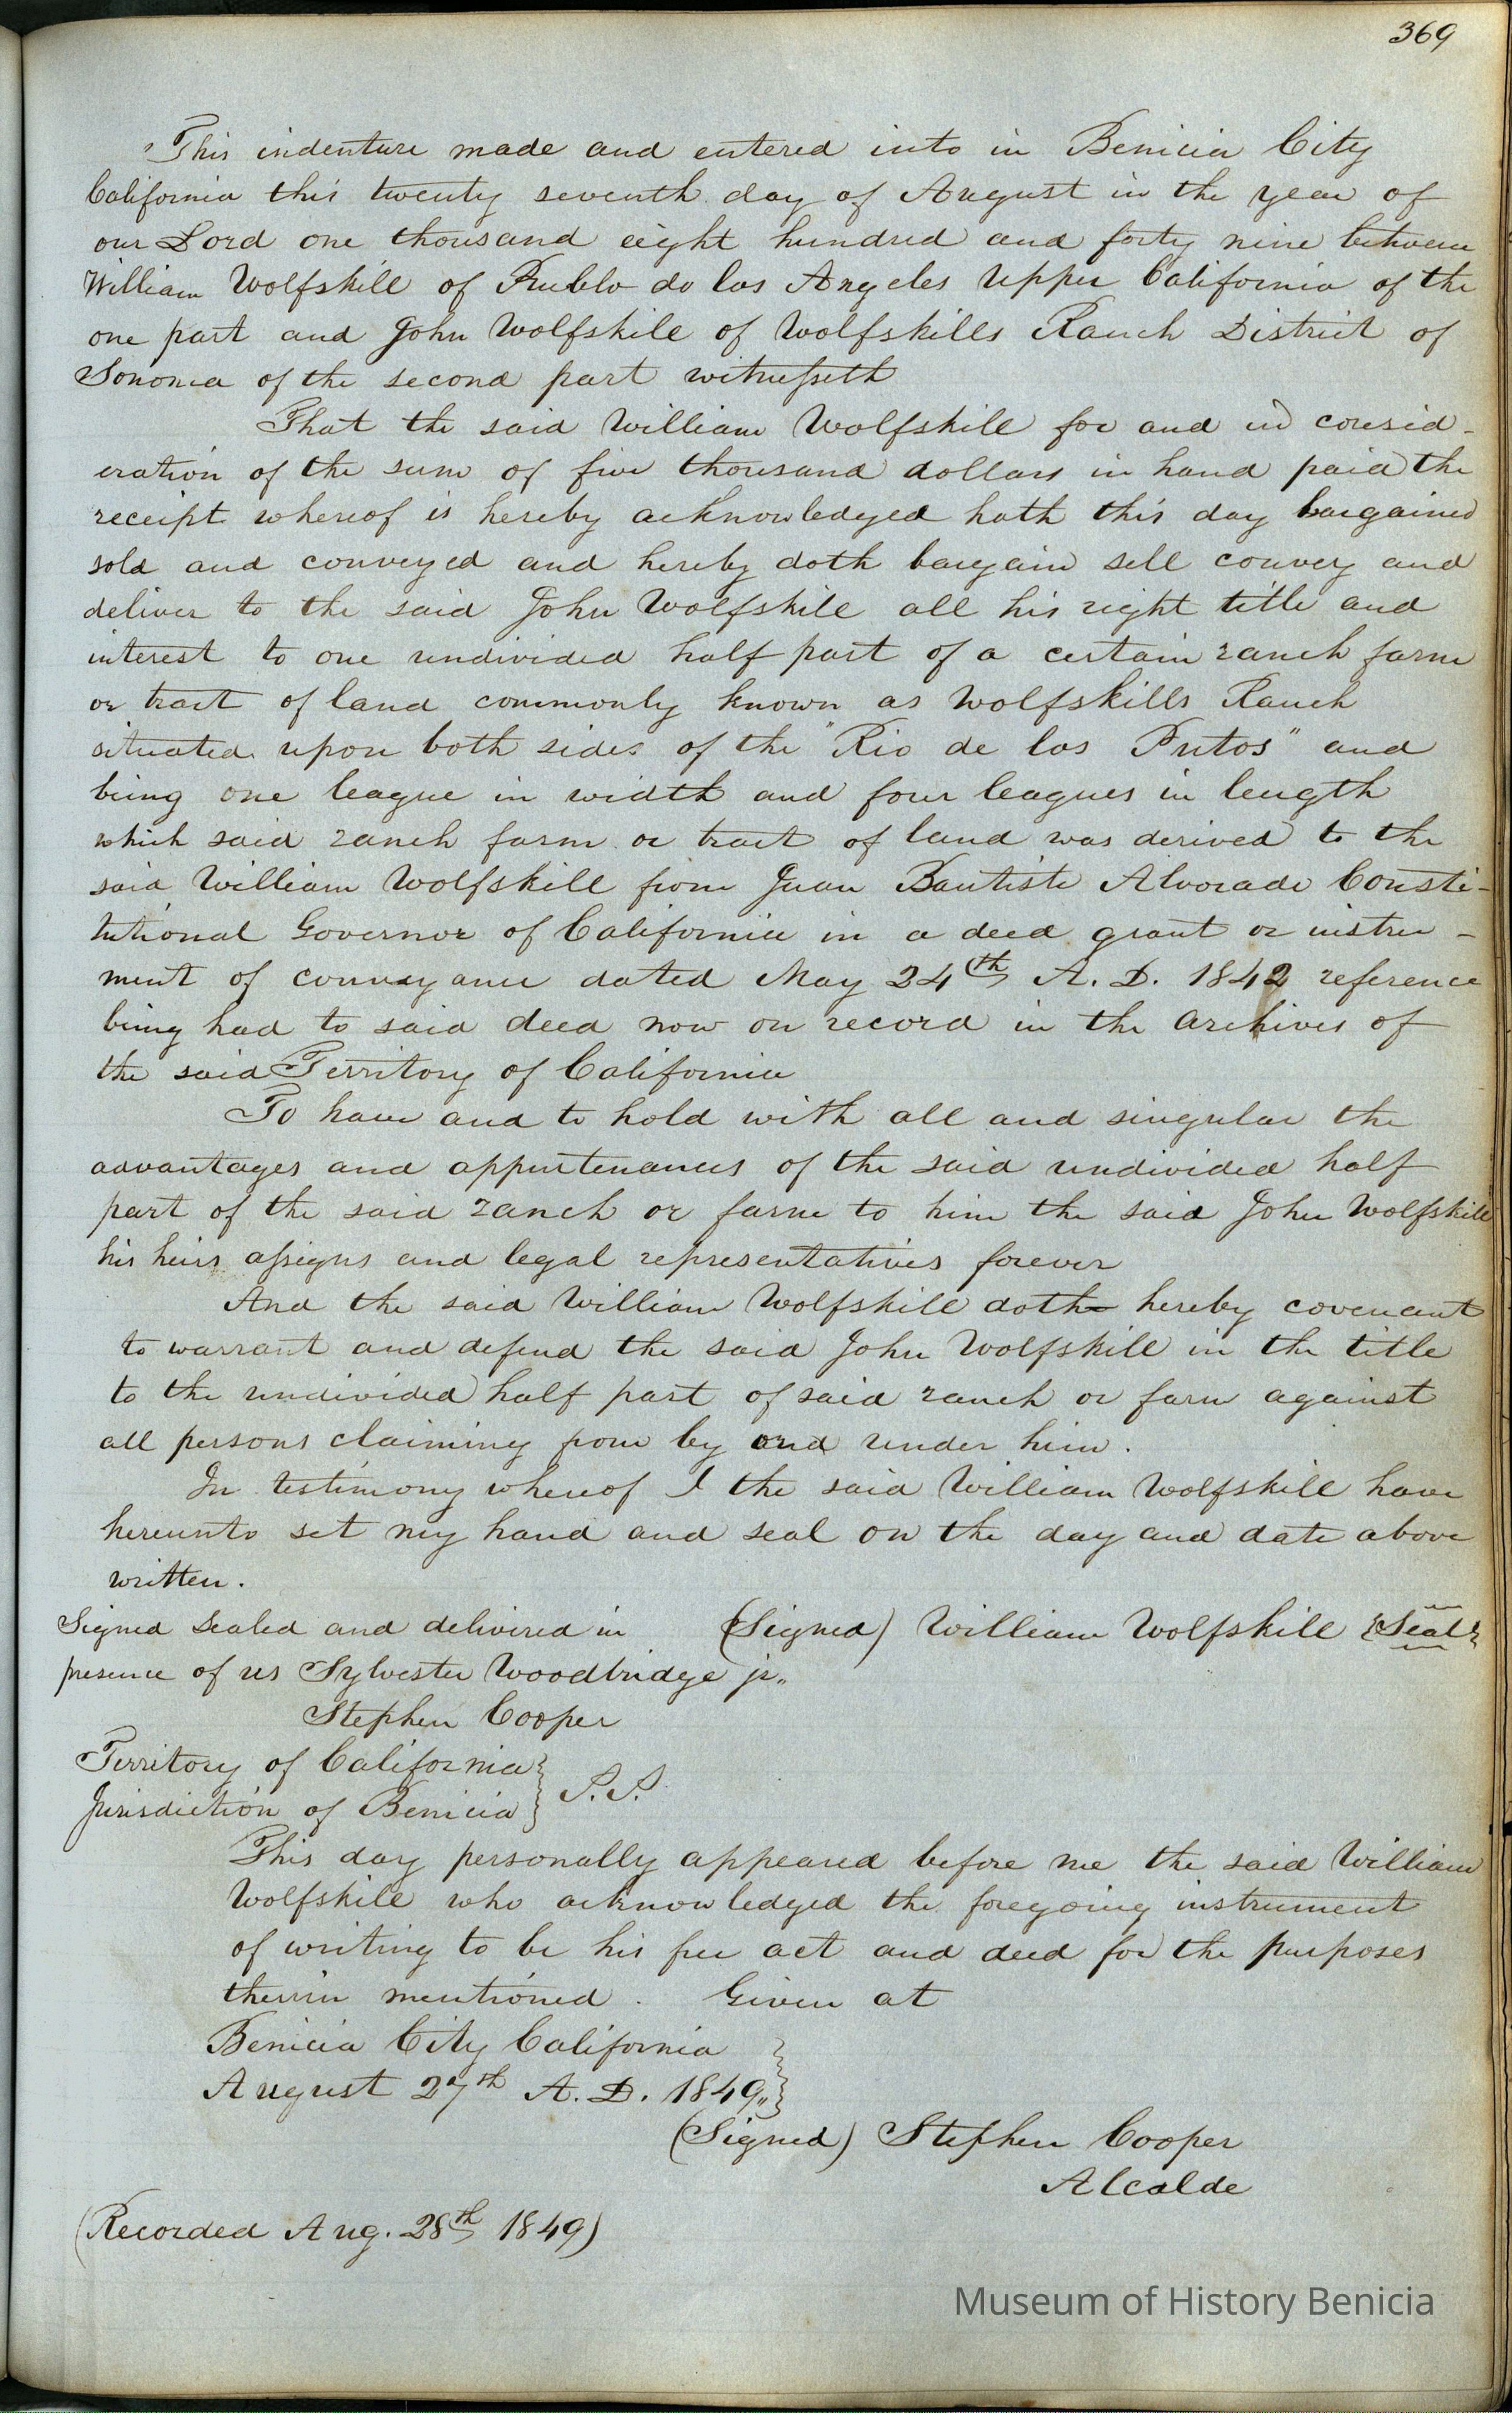 369
This indenture made and entered into in Benicia City
California this twenty seventh day of August in the year of
our Lord one thousand eight hundred and forty nine between
William Wolfskill of Pueblo do los Angeles Upper California of the
one part and John Wolfskill of Wolfskills Ranch District of
Sonoma of the second part witnesseth
That the said William Wolfskill for and in consid-
eration of the sum of five thousand dollars in hand paid the
receipt whereof is hereby acknowledged hath this day bargained
sold and conveyed and hereby doth bargain sell convey and
deliver to the said John Wolfskill all his right title and
interest to one undivided half part of a certain ranch farm
or tract of land commonly known as Wolfskills Ranch
situated upon both sides of the "Rio de los Putos" and
being one league in width and four leagues in length
which said ranch farm or tract of land was derived to the
said William Wolfskill from Juan Bautiste Alvorado Consti-
tutional Governor of California in a deed grant or instru-
ment of conveyance dated May 24th A. D. 1842 reference
being had to said deed now on record in the archives of
the said Territory of California
To have and to hold with all and singular the
advantages and appurtenances of the said undivided half
part of the said ranch or farm to him the said John Wolfskill
his heirs assigns and legal representatives forever
And the said William Wolfskill doth hereby covenant
to warrant and defend the said John Wolfskill in the title
to the undivided half part of said ranch or farm against
all persons claiming from by and under him.
In testimony whereof I the said William Wolfskill have
hereunto set my hand and seal on the day and date above
written.
Signed Sealed and delivered in (Signed) William Wolfskill {Seal}
presence of us Sylvester Woodbridge jr.
Stephen Cooper
Territory of California }
Jurisdiction of Benicia } S.S.
This day personally appeared before me the said William
Wolfskill who acknowledged the foregoing instrument
of writing to be his free act and deed for the purposes
therein mentioned. Given at
Benicia City California }
August 27th A. D. 1849 }
(Signed) Stephen Cooper
Alcalde
(Recorded Aug. 28th 1849)
Museum of History Benicia